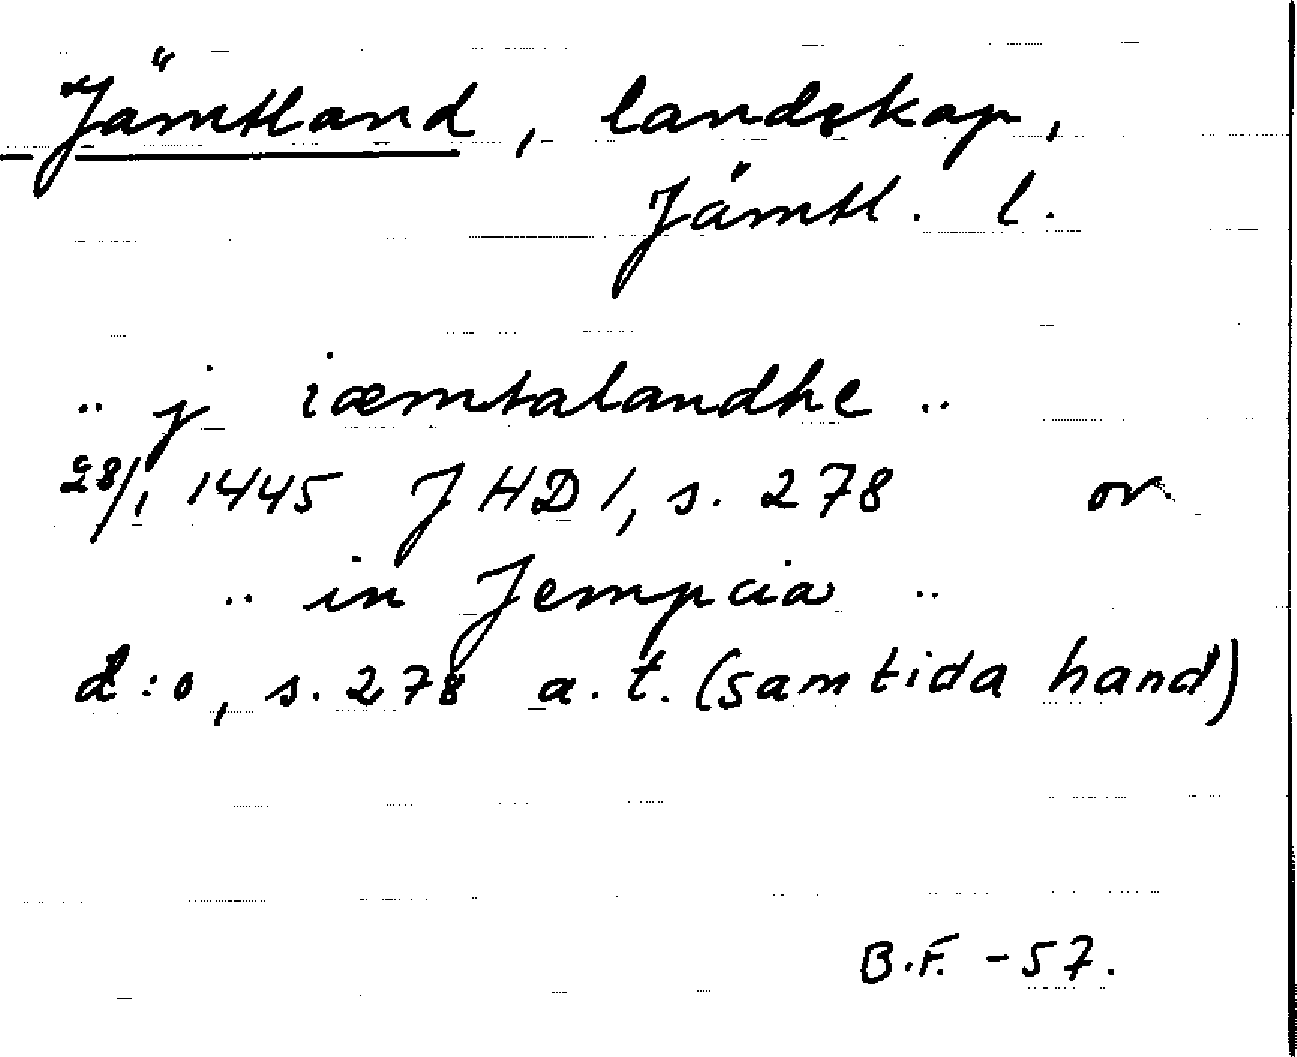 Jämtland, landskap,
Jämtl. l.
.. j iæmtalandhe ..
28/1 1445 JHD 1, s. 278 or
.. in Jempcia ..
d:o, s. 278 a. t. (samtida hand)
B.F. -57.